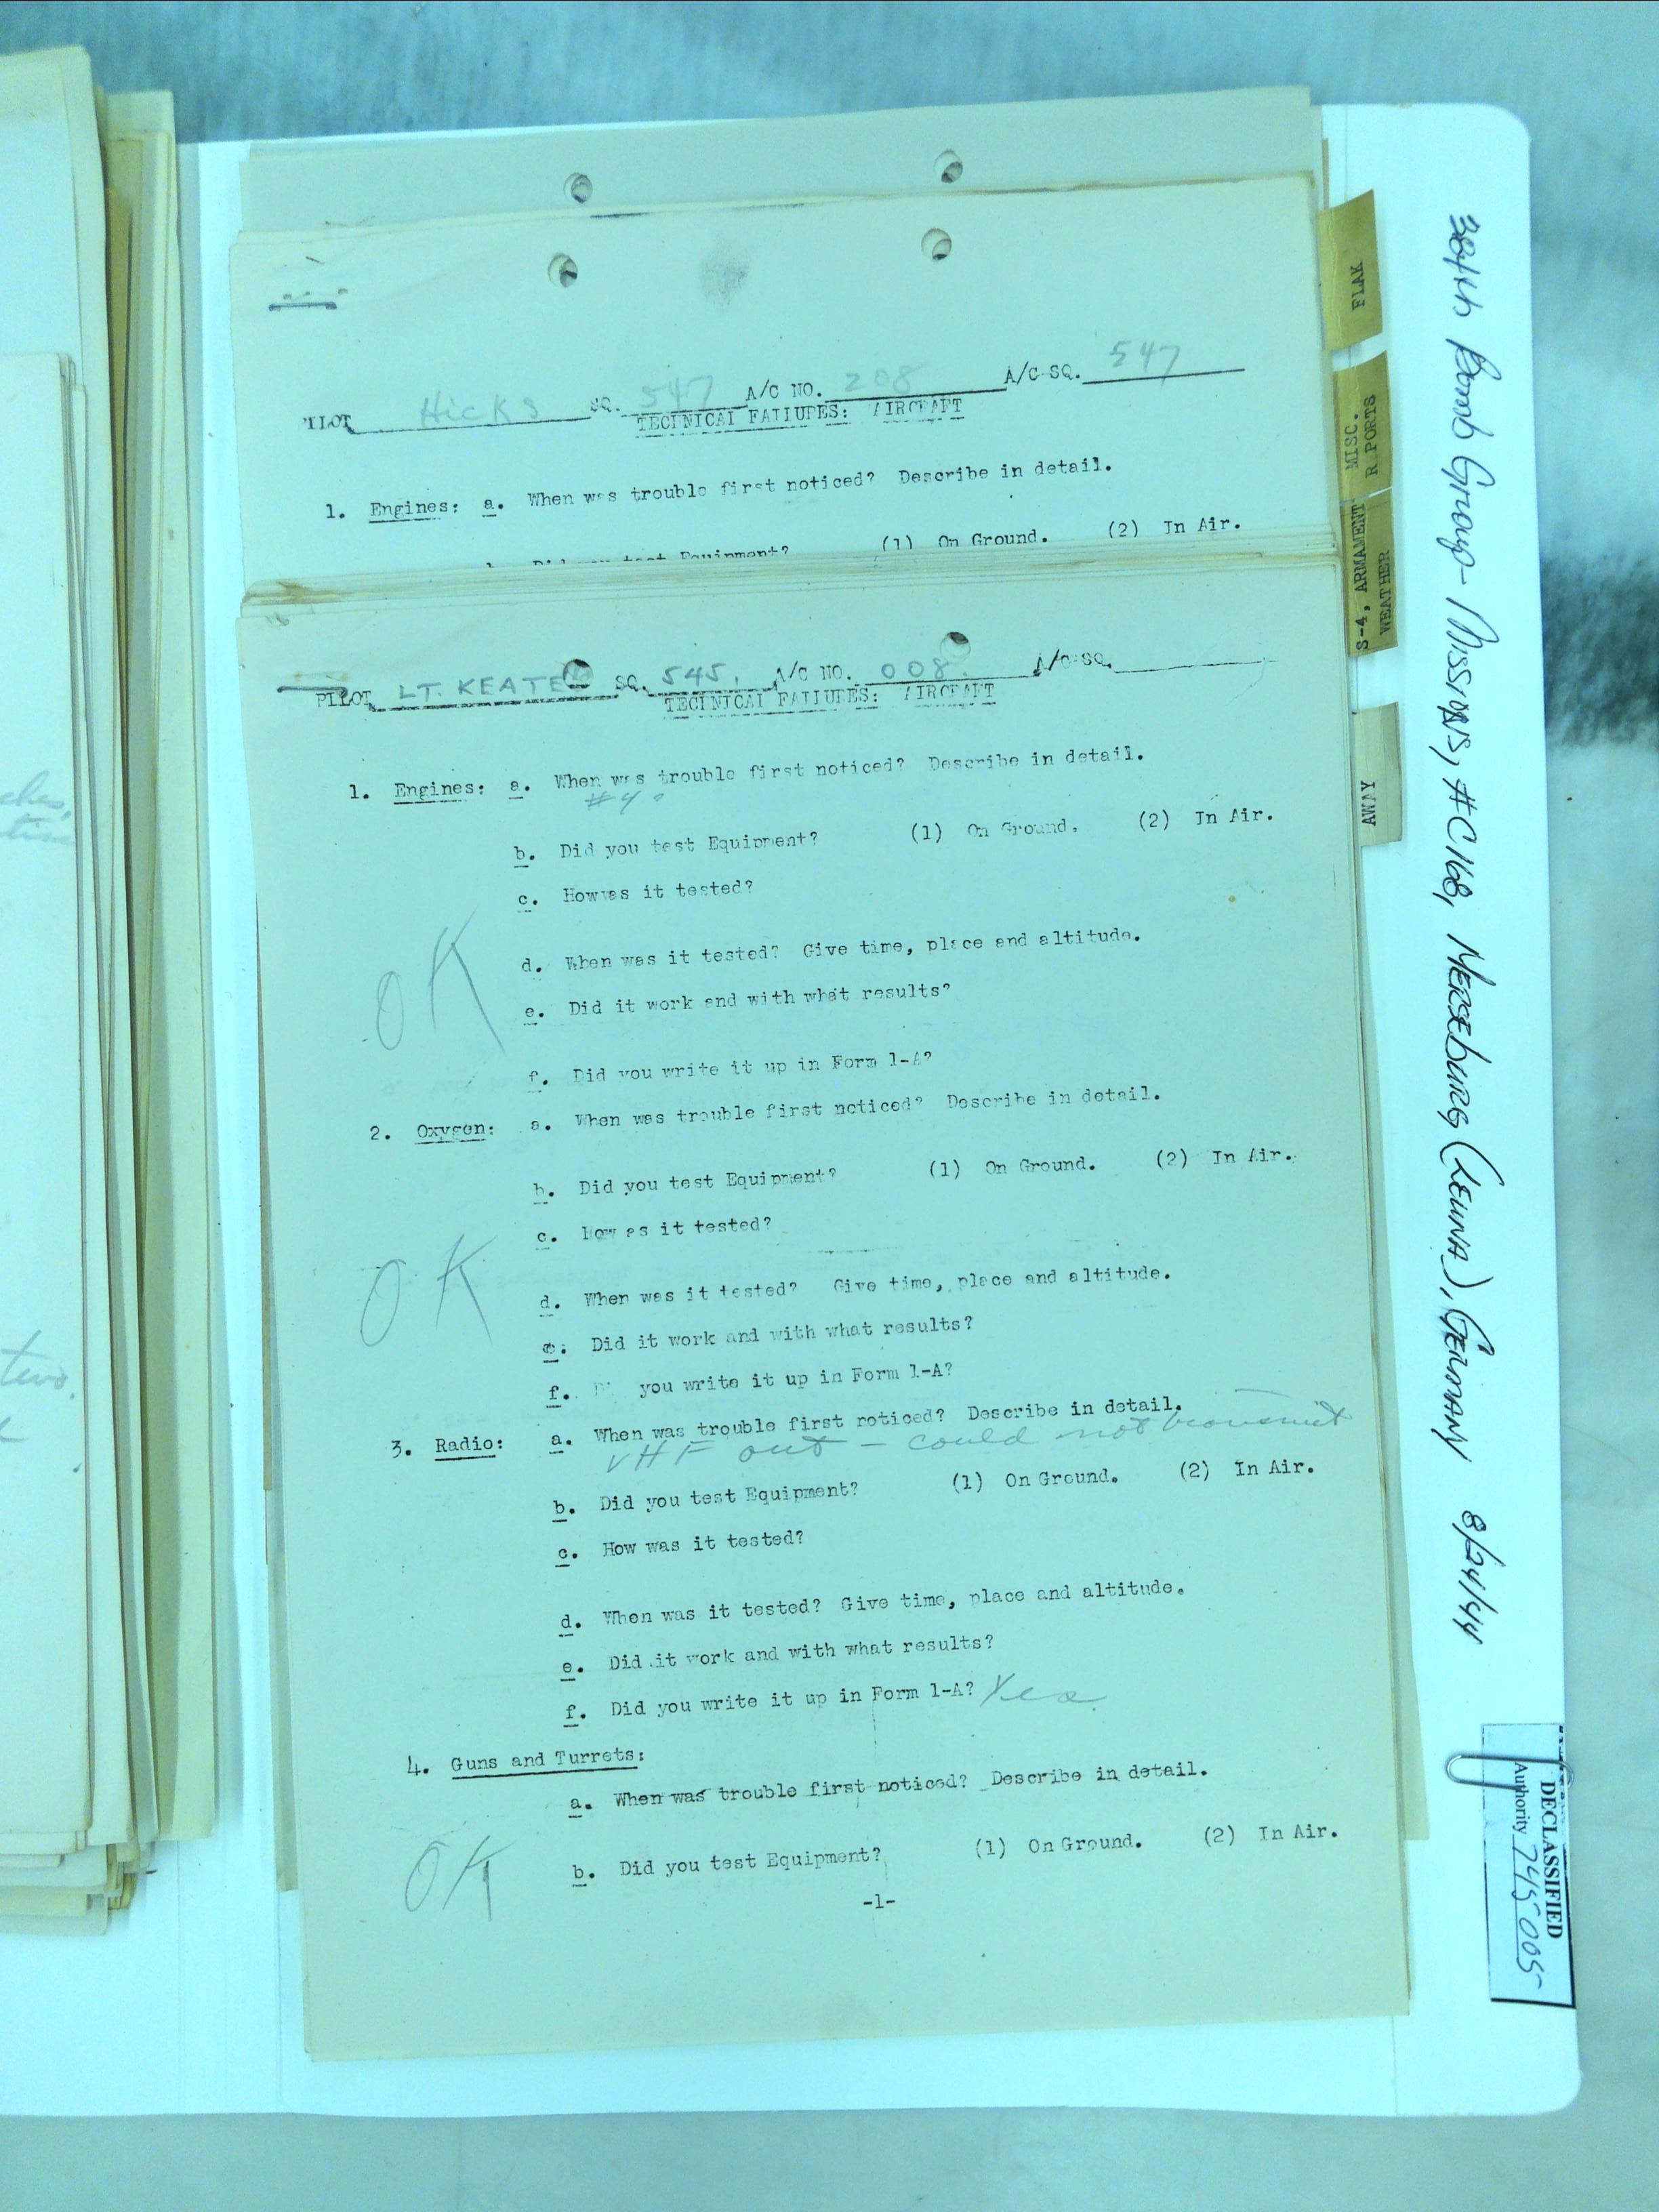 PILOT Hicks SQ. 547 A/C NO. 208 A/C SQ. 547
TECHNICAL FAILURES: AIRCRAFT
1. Engines: a. When was trouble first noticed? Describe in detail.
Did you test Equipment? (1) On Ground. (2) In Air.
PILOT LT. KEATE SQ. 545. A/C NO. 008. A/C SQ.
TECHNICAL FAILURES: AIRCRAFT
1. Engines: a. When was trouble first noticed? Describe in detail.
#4
b. Did you test Equipment? (1) On Ground. (2) In Air.
c. How was it tested?
OK
d. When was it tested? Give time, place and altitude.
e. Did it work and with what results?
f. Did you write it up in Form 1-A?
2. Oxygen: a. When was trouble first noticed? Describe in detail.
b. Did you test Equipment? (1) On Ground. (2) In Air.
c. How as it tested?
OK
d. When was it tested? Give time, place and altitude.
e. Did it work and with what results?
f. you write it up in Form 1-A?
3. Radio: a. When was trouble first noticed? Describe in detail.
VHF out - could not transmit
b. Did you test Equipment? (1) On Ground. (2) In Air.
c. How was it tested?
d. When was it tested? Give time, place and altitude.
e. Did it work and with what results?
f. Did you write it up in Form 1-A? Yes
4. Guns and Turrets:
a. When was trouble first noticed? Describe in detail.
OK
b. Did you test Equipment? (1) On Ground. (2) In Air.
-1-
FLAK
MISC.
R PORTS
S-4, ARMAMENT
WEATHER
AWAY
384th Bomb Group - Missions, #C168, Merseburg (Leuna), German 8/24/44
DECLASSIFIED
Authority 745005
two.